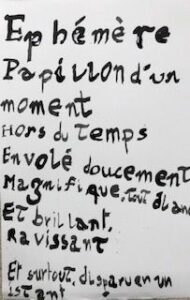 Ephémère
Papillon d'un
moment
Hors du Temps
Envolé doucement
Magnifique, tout blanc
Et brillant,
Ravissant
Et surtout, disparu en un
istant